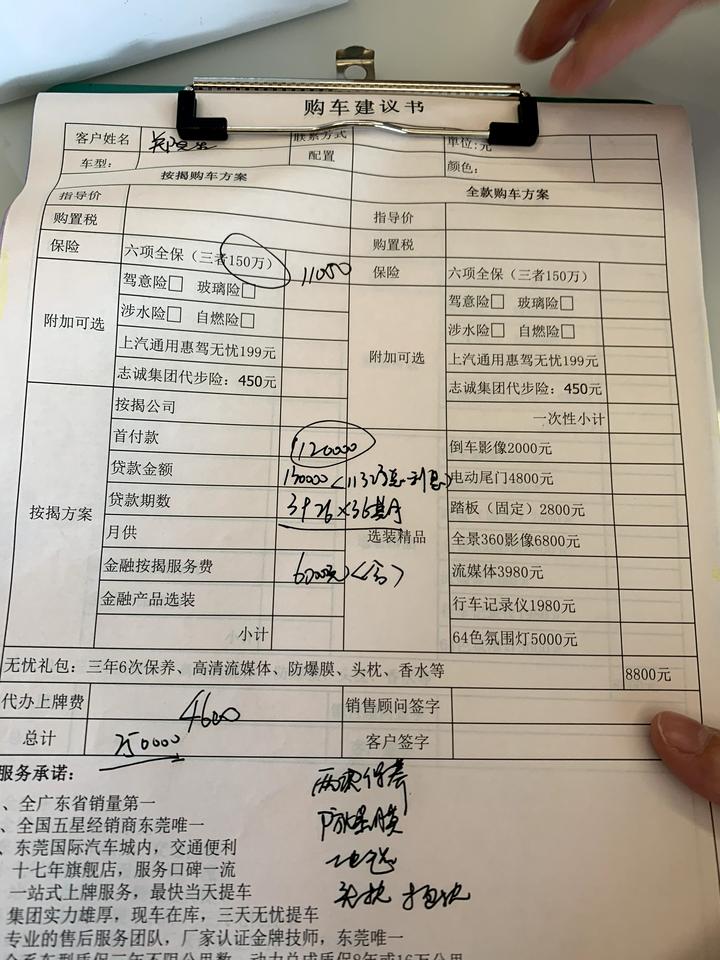 购车建议书
客户姓名 联系方式 单位:元
车型: 配置 颜色:
按揭购车方案 全款购车方案
指导价 指导价
购置税 购置税
保险 六项全保（三者150万） 11050 保险 六项全保（三者150万）
驾意险□ 玻璃险□ 驾意险□ 玻璃险□
涉水险□ 自燃险□ 涉水险□ 自燃险□
附加可选 附加可选
上汽通用惠驾无忧199元 上汽通用惠驾无忧199元
志诚集团代步险：450元 志诚集团代步险：450元
按揭公司 一次性小计
首付款 120000 倒车影像2000元
贷款金额 130000 电动尾门4800元
贷款期数 3926×36 踏板（固定）2800元
按揭方案 月供 选装精品 全景360影像6800元
金融按揭服务费 流媒体3980元
金融产品选装 行车记录仪1980元
小计 64色氛围灯5000元
无忧礼包：三年6次保养、高清流媒体、防爆膜、头枕、香水等 8800元
代办上牌费 4600 销售顾问签字
总计 250000 客户签字
服务承诺：
、全广东省销量第一
、全国五星经销商东莞唯一
、东莞国际汽车城内，交通便利
十七年旗舰店，服务口碑一流
一站式上牌服务，最快当天提车
集团实力雄厚，现车在库，三天无忧提车
专业的售后服务团队，厂家认证金牌技师，东莞唯一
全系车型质保三年不限公里数，动力总成质保8年或16万公里
两次保养
防爆膜
头枕